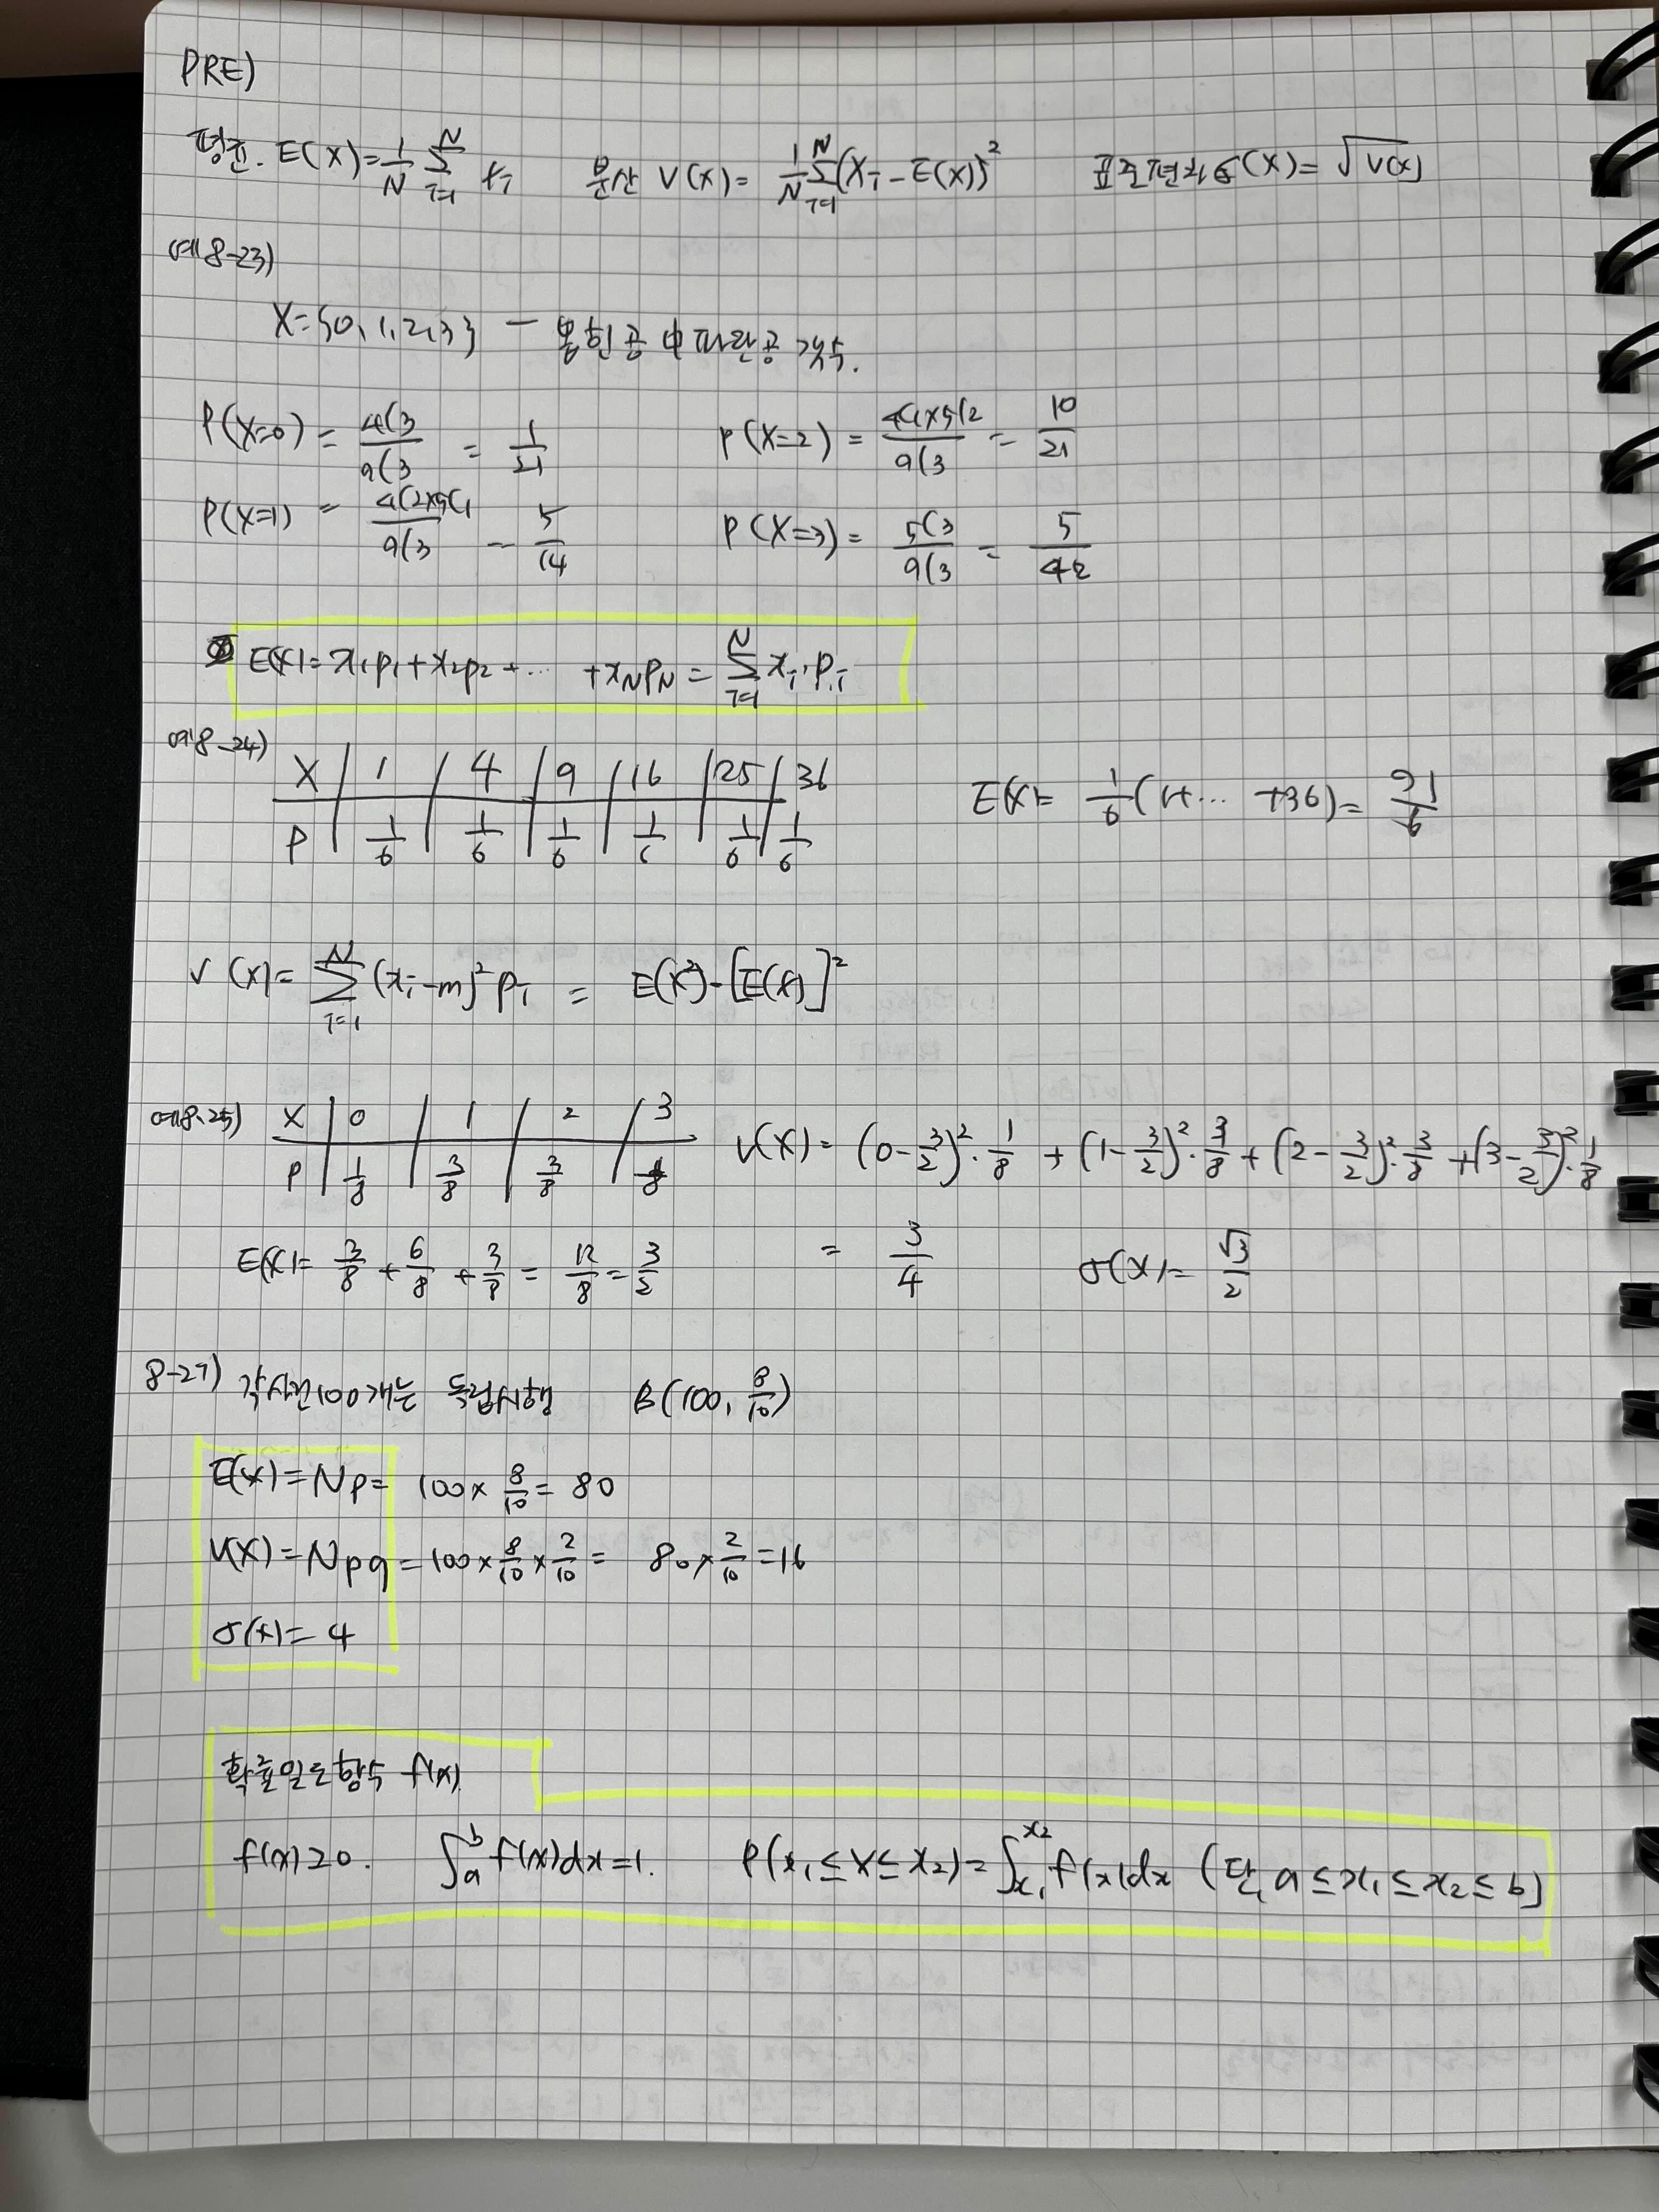 PRE)
평균. E(X)=1/N Σ(i=1..N) xi 분산 V(X)= 1/N Σ(i=1..N)(Xi-E(X))² 표준편차 σ(X)=√V(X)
예8-23)
X={0,1,2,3} - 뽑힌 공 中 파란공 갯수.
P(X=0) = 4C3/9C3 = 1/21 P(X=2) = 4C1×5C2/9C3 = 10/21
P(X=1) = 4C2×5C1/9C3 = 5/14 P(X=3) = 5C3/9C3 = 5/42
E(X)=x1p1+x2p2+... +xNpN=Σ(i=1..N) xi·pi
예8-24)
X | 1 | 4 | 9 | 16 | 25 | 36 E(X)= 1/6(1+... +36)= 91/6
P | 1/6 | 1/6 | 1/6 | 1/6 | 1/6 | 1/6
V(X)=Σ(i=1..N)(xi-m)²pi = E(X²)-[E(X)]²
예8-25) X | 0 | 1 | 2 | 3 V(X)=(0-3/2)²·1/8+(1-3/2)²·3/8+(2-3/2)²·3/8+(3-3/2)²·1/8
P | 1/8 | 3/8 | 3/8 | 1/8
E(X)=3/8+6/8+3/8=12/8=3/2 = 3/4 σ(X)=√3/2
8-27) 각사건 100개는 독립시행 B(100, 8/10)
E(X)=Np=100×8/10=80
V(X)=Npq=100×8/10×2/10= 80×2/10=16
σ(X)=4
확률밀도함수 f(x)
f(x)≥0. ∫a^b f(x)dx=1. P(x1≤X≤x2)=∫x1^x2 f(x)dx (단, a≤x1≤x2≤b)